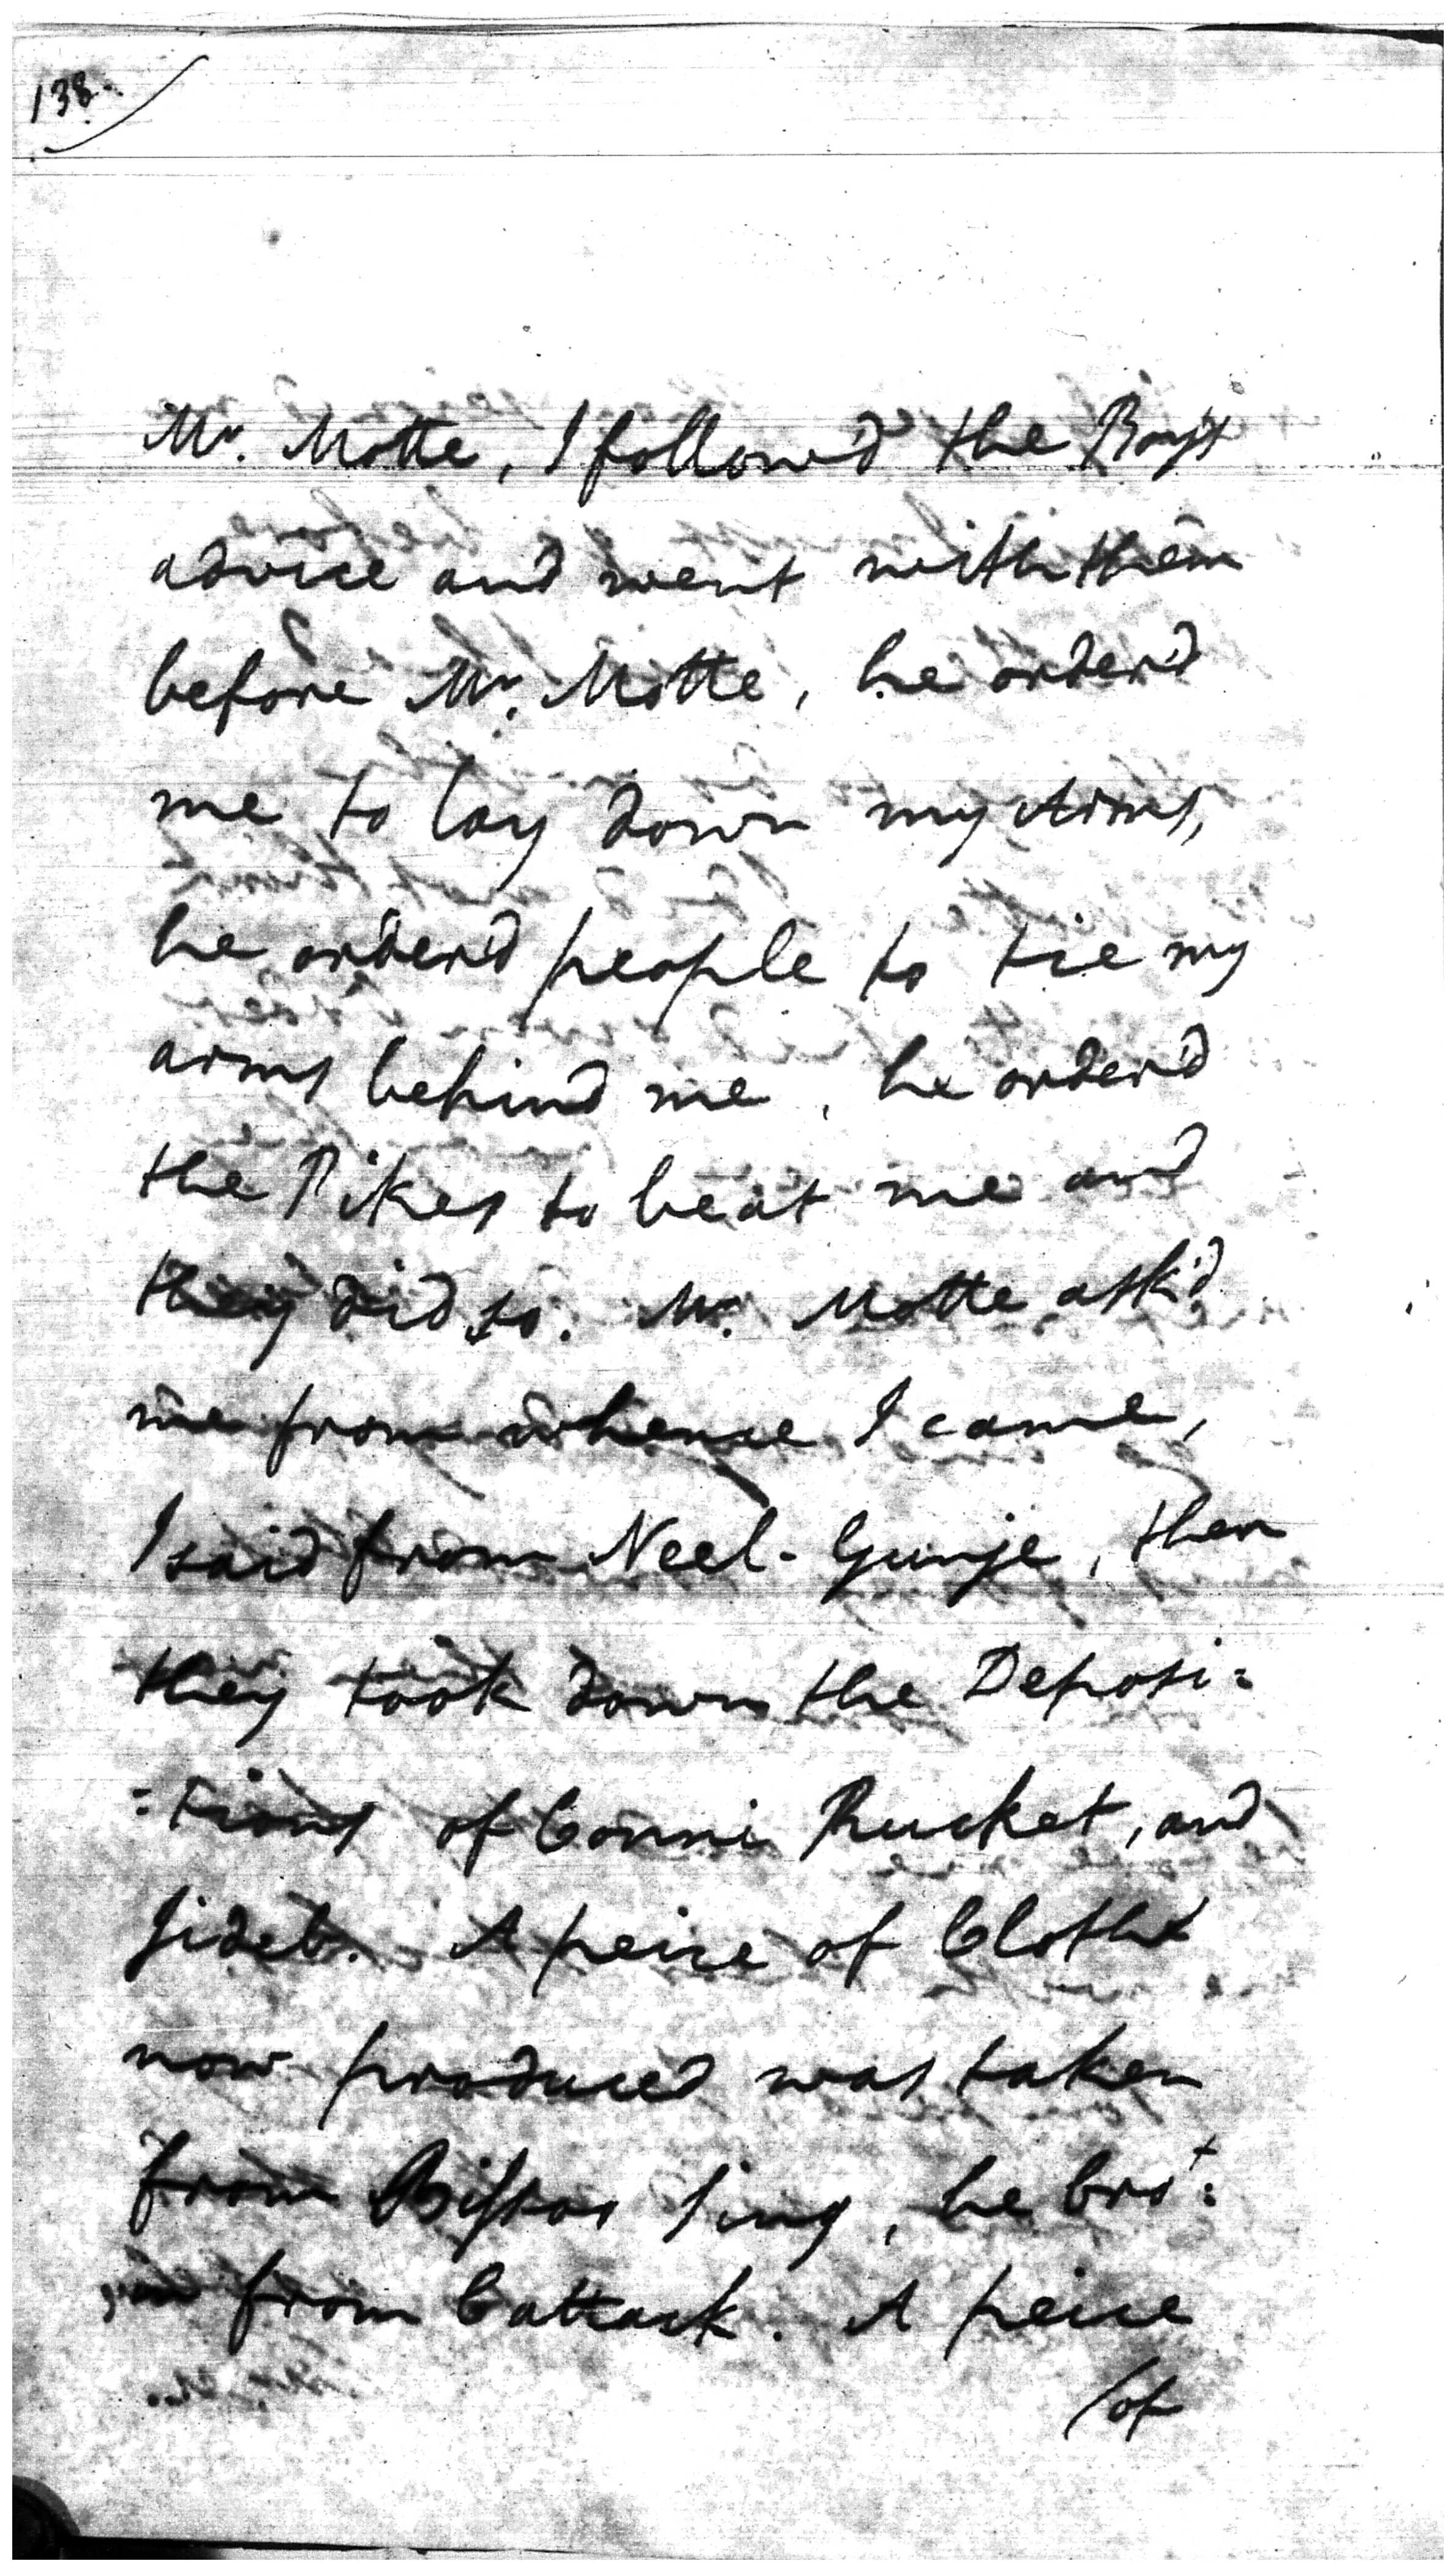 138.
Mr. Motte, I follow'd the Boy's
advice and went with them
before Mr. Motte, he order'd
me to lay down my Arms,
he order'd people to tie my
arms behind me, he order'd
the Pikes to beat me and
they did so. Mr. Motte ask'd
me from whence I came,
I said from Neel-Gunje, then
they took down the Deposi=
=tions of Conni Rucket, and
A peice of Cloth
now produced was taken
from Sing, he bro't
from Cattack. A peice
/of